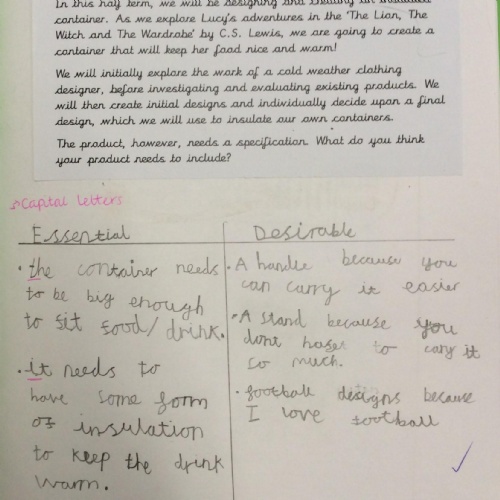 In this half term, we will be designing and creating an insulated
container. As we explore Lucy's adventures in the 'The Lion, The
Witch and The Wardrobe' by C.S. Lewis, we are going to create a
container that will keep her food nice and warm!
We will initially explore the work of a cold weather clothing
designer, before investigating and evaluating existing products. We
will then create initial designs and individually decide upon a final
design, which we will use to insulate our own containers.
The product, however, needs a specification. What do you think
your product needs to include?
Capital letters
Essential
• the container needs
to be big enough
to fit food/drink.
• it needs to
have some form
of insulation
to keep the drink
warm.
Desirable
• A handle because you
can carry it easier
• A stand because you
done to cary it
so much.
• football designs because
I love football